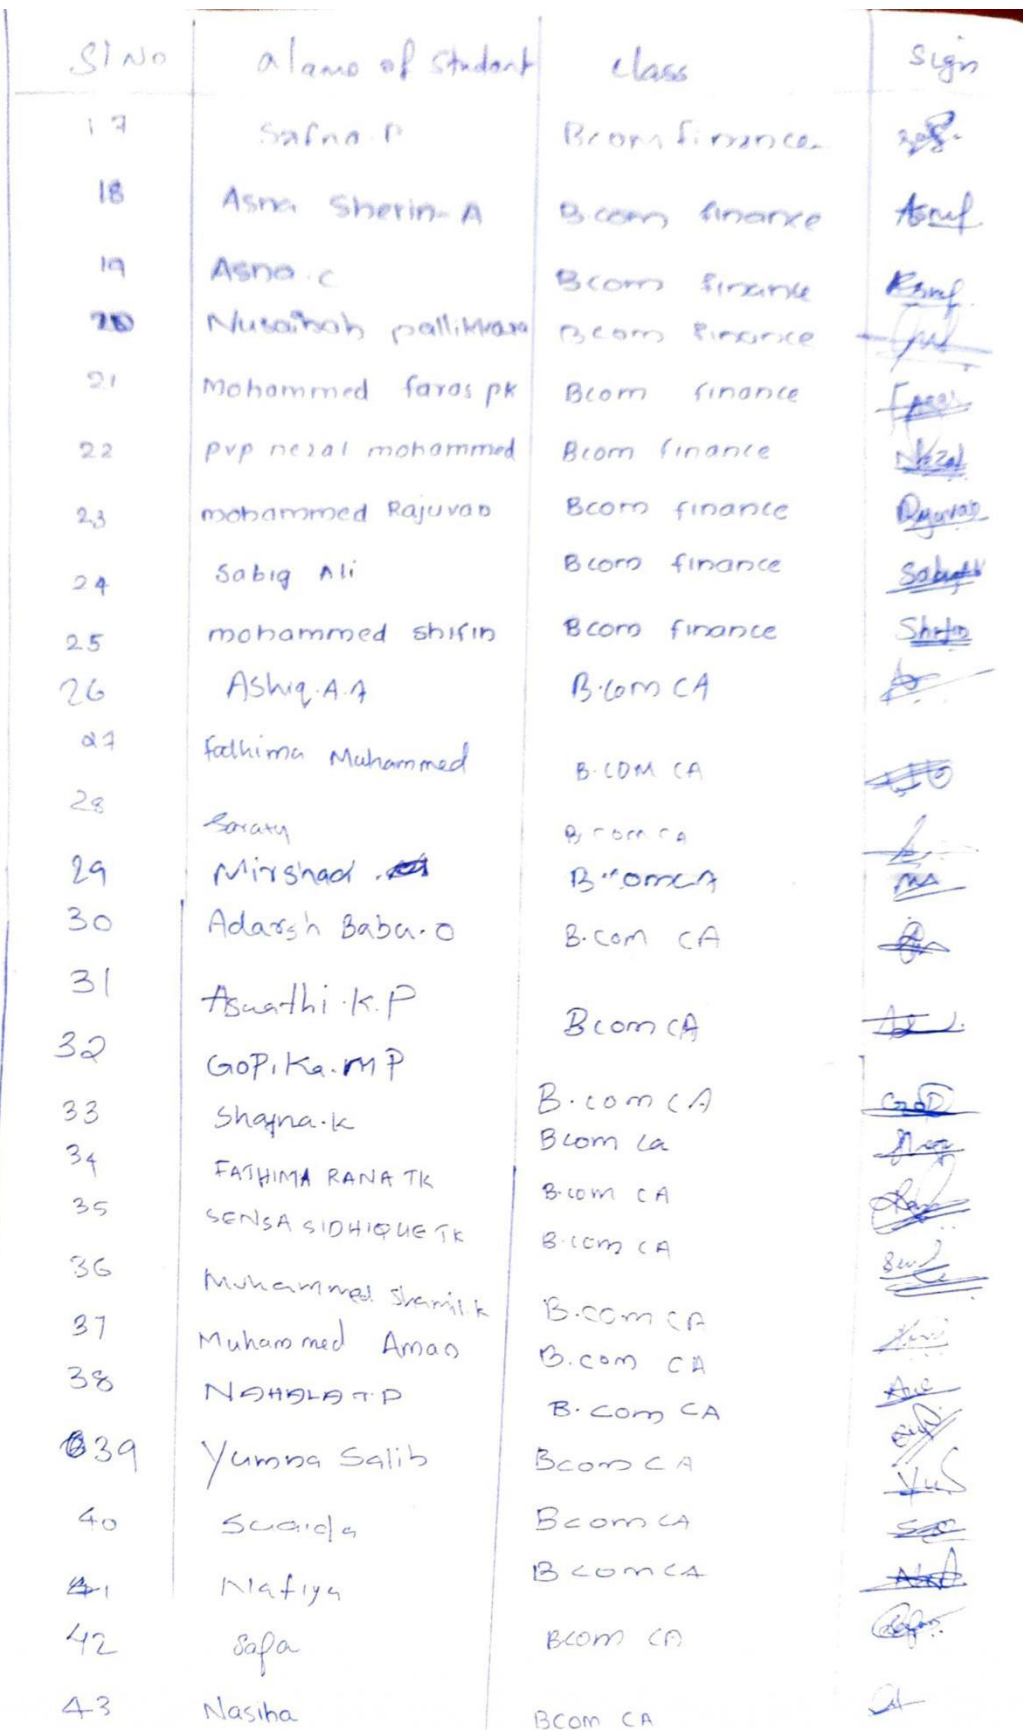 Sl No Name of Student class Sign
17 Safna.P Bcom finance
18 Asna Sherin-A B.com finance
19 Asna.C Bcom finance
20 Nusaibah pallikkara Bcom finance
21 Mohammed faras pk Bcom finance
22 pvp nezal mohammed Bcom finance Nezal
23 mohammed Rajuvan Bcom finance Rajuvan
24 Sabiq Ali Bcom finance
25 mohammed shifin Bcom finance
26 Ashiq.A.A B.com CA
27 fathima Muhammed B.COM CA
28 B com CA
29 Mirshad B.com CA
30 Adarsh Babu.O B.com CA
31 Aswathi.K.P Bcom CA
32 GOPiKa.MP B.com CA
33 Shajna.K Bcom Ca
34 FATHIMA RANA TK B.com CA
35 SENSA SIDHIQUE TK B.com CA
36 Muhammed Shamil.k B.com CA
37 Muhammed Aman B.com CA
38 NAHALA T.P B.com CA
39 Yumna Salib Bcom CA
40 Suaida Bcom CA
41 Nafiya Bcom CA
42 Safa Bcom CA
43 Nasiha Bcom CA